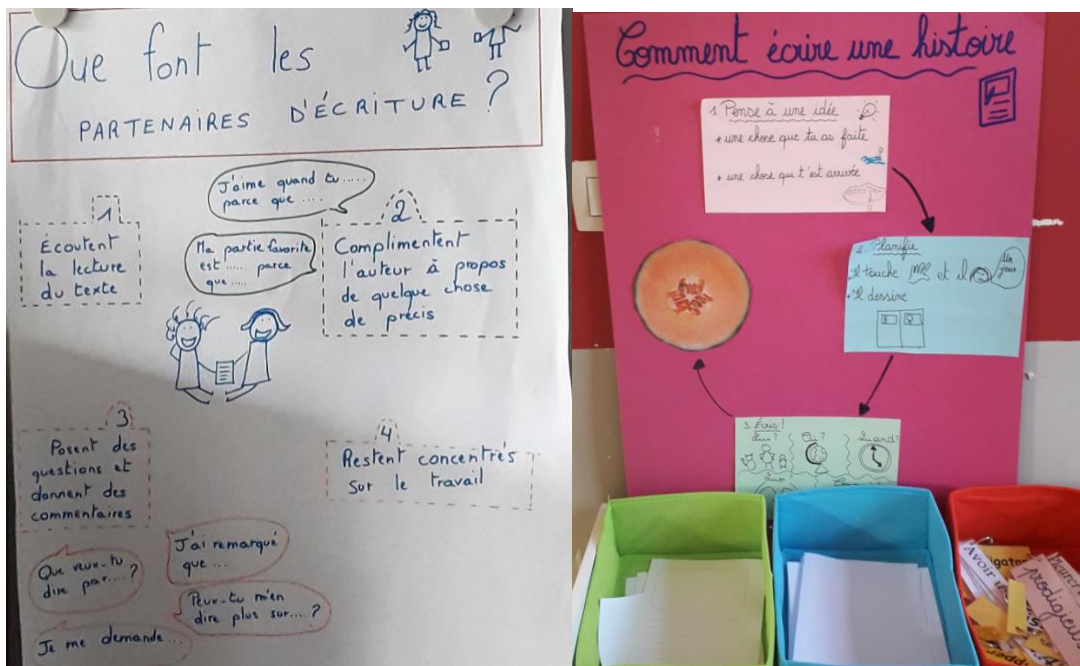 Que font les
PARTENAIRES D'ÉCRITURE ?
J'aime quand tu.....
parce que ....
1
Écoutent
la lecture
du texte
Ma partie favorite
est ..... parce
que .....
2
Complimentent
l'auteur à propos
de quelque chose
de précis
3
Posent des
questions et
donnent des
commentaires
4
Restent concentrés
sur le travail
J'ai remarqué
que ....
Que veux-tu
dire par....?
Peux-tu m'en
dire plus sur....?
Je me demande...
Comment écrire une histoire
1. Pense à une idée
+ une chose que tu as faite
+ une chose qui t'est arrivée
2. Planifie
+ Il touche et il
Un jour
+ Il dessine
3. Écris !
Qui ?
Où ?
Quand ?
Avoir
pleurer
prodigieu